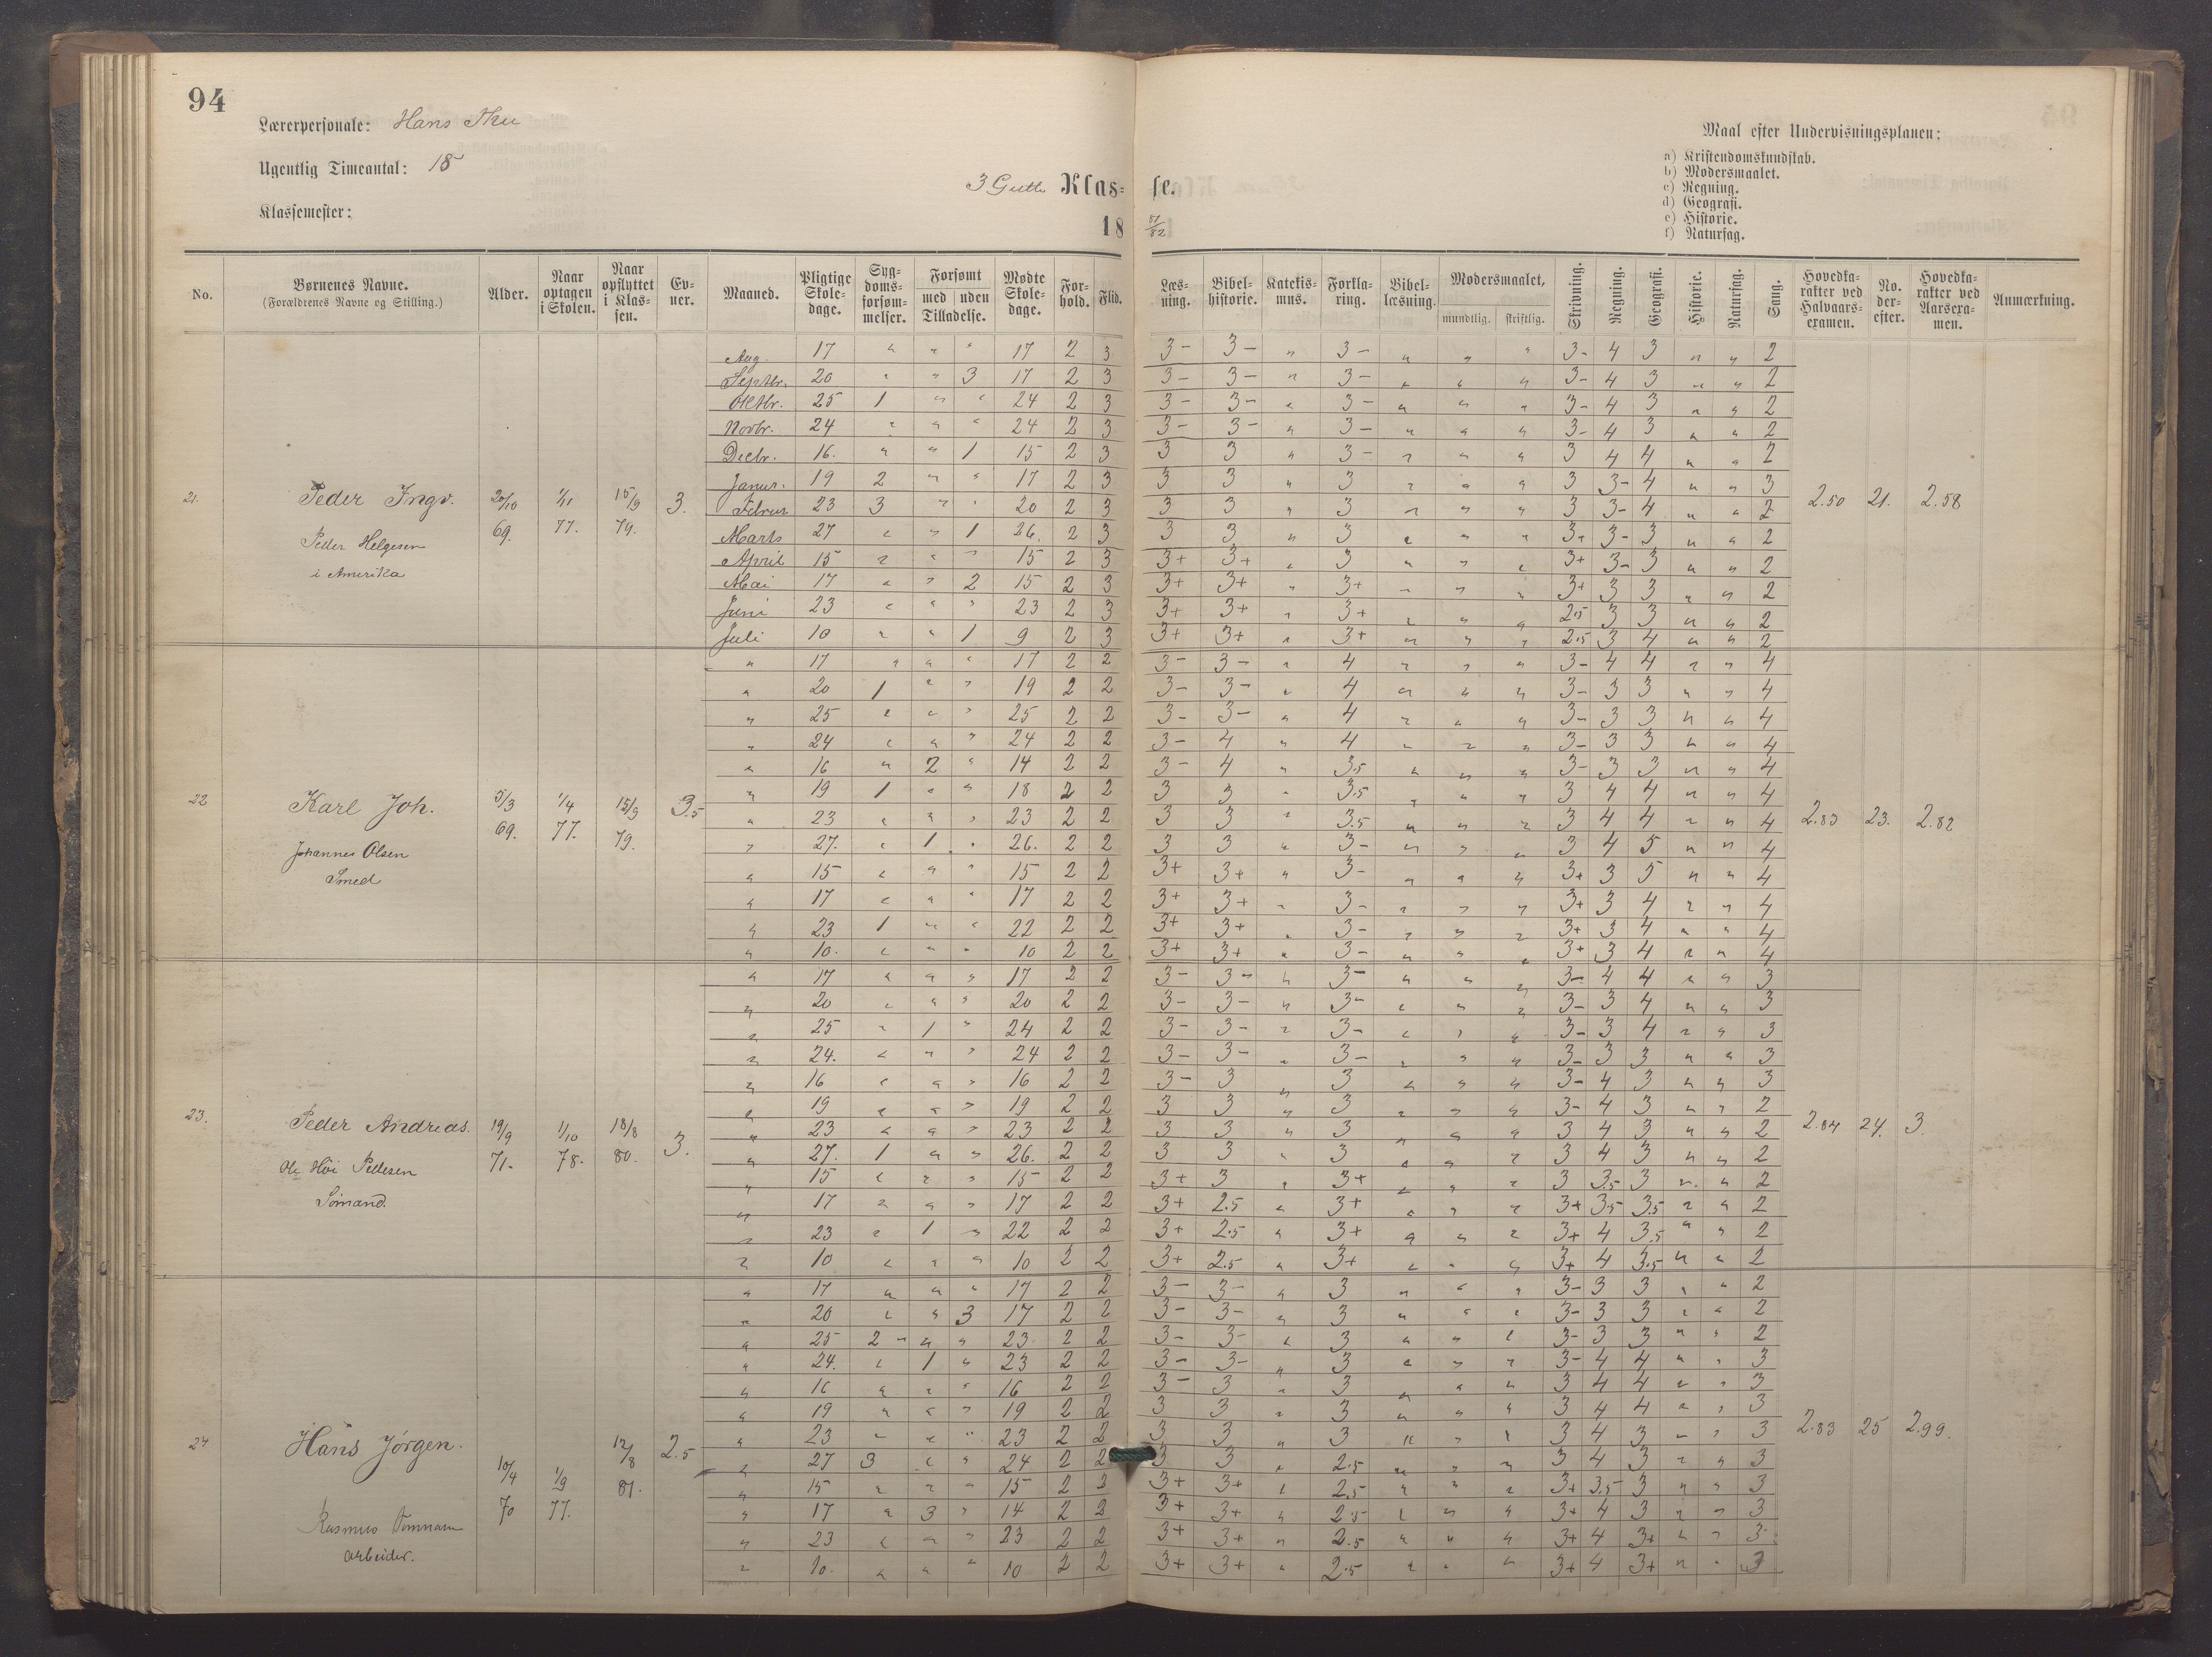 94
Lærerpersonale: Hans
Ugentlig Timeantal: 18
Klassemester:
3 Gutte Klas= se.
18 81/82
Maal efter Undervisningsplanen:
a) Kristendomskundskab.
b) Modersmaalet.
c) Regning.
d) Geografi.
e) Historie.
f) Naturfag.
No. Børnenes Navne. (Forældrenes Navne og Stilling.) Alder. Naar optagen i Skolen. Naar opflyttet i Klas- sen. Ev- ner. Maaned. Pligtige Skole- dage. Syg- doms- forsøm- melser. Forsømt med uden Tilladelse. Mødte Skole- dage. For- hold. Flid. Læs- ning. Bibel- historie. Katekis- mus. Forkla- ring. Bibel- læsning. Modersmaalet, mundtlig. skriftlig. Skrivning. Regning. Geografi. Historie. Naturfag. Sang. Hovedka- rakter ved Halvaars- examen. No. der- efter. Hovedka- rakter ved Aarsexa- men. Anmærkning.
Aug. 17 " " " 17 2 3 3- 3- " 3- " " " 3- 4 3 " " 2
Septbr. 20 " " 3 17 2 3 3- 3- " 3- " " " 3- 4 3 " " 2
Oktbr. 25 1 " " 24 2 3 3- 3- " 3- " " " 3- 4 3 " " 2
Novbr. 24 " " " 24 2 3 3- 3- " 3- " " " 3- 4 3 " " 2
Decbr. 16. " " 1 15 2 3 3 3 " 3- " " " 3 4 4 " " 2
Janur. 19 2 " " 17 2 3 3 3 " 3 " " " 3 3- 4 " " 3
21. Peder Ingv. 20/10 69. 1/11 77. 15/9 79. 3. Februr 23 3 " " 20 2 3 3 3 " 3 " " " 3 3- 4 " " 2 2.50 21. 2.58
Peder Helgesen
i Amerika
Marts 27 " " 1 26. 2 3 3 3 " 3 " " " 3+ 3- 3 " " 2
April 15 " " " 15 2 3 3+ 3+ " 3 " " " 3+ 3- 3 " " 2
Mai 17 " " 2 15 2 3 3+ 3+ " 3+ " " " 3+ 3 3 " " 2
Juni 23 " " " 23 2 3 3+ 3+ " 3+ " " " 2.5 3 3 " " 2
Juli 10 " " 1 9 2 3 3+ 3+ " 3+ " " " 2.5 3 4 " " 2
" 17 " " " 17 2 2 3- 3- " 4 " " " 3- 4 4 " " 4
" 20 1 " " 19 2 2 3- 3- " 4 " " " 3- 3 3 " " 4
" 25 " " " 25 2 2 3- 3- " 4 " " " 3- 3 3 " " 4
" 24 " " " 24 2 2 3- 4 " 4 " " " 3- 3 3 " " 4
" 16 " 2 " 14 2 2 3- 4 " 3.5 " " " 3- 3 3 " " 4
22 Karl Joh. 5/3 69. 1/4 77. 15/9 79. 3.5 " 19 1 " " 18 2 2 3 3 " 3.5 " " " 3 4 4 " " 4
" 23 " " " 23 2 2 3 3 " 3.5 " " " 3 4 4 " " 4 2.83 23. 2.82
Johannes Olsen
Smed
" 27. " 1 " 26. 2 2 3 3 " 3- " " " 3 4 5 " " 4
" 15 " " " 15 2 2 3+ 3+ " 3- " " " 3+ 3 5 " " 4
" 17 " " " 17 2 2 3+ 3+ " 3- " " " 3+ 3 4 " " 4
" 23 1 " " 22 2 2 3+ 3+ " 3- " " " 3+ 3 4 " " 4
" 10. " " " 10 2 2 3+ 3+ " 3- " " " 3+ 3 4 " " 4
" 17 " " " 17 2 2 3- 3- " 3- " " " 3- 4 4 " " 3
" 20 " " " 20 2 2 3- 3- " 3- " " " 3- 3 4 " " 3
" 25 " 1 " 24 2 2 3- 3- " 3- " " " 3- 3 4 " " 3
" 24. " " " 24 2 2 3- 3- " 3- " " " 3- 3 3 " " 3
" 16 " " " 16 2 2 3- 3 " 3 " " " 3- 4 3 " " 3
" 19 " " " 19 2 2 3 3 " 3 " " " 3- 4 3 " " 2
23. Peder Andreas. 19/9 71. 1/10 78. 18/8 80. 3. " 23 " " " 23 2 2 3 3 " 3 " " " 3 4 3 " " 2 2.84 24. 3
Ole Höi Pedersen
Sömand.
" 27. 1 " " 26. 2 2 3 3 " 3 " " " 3 4 3 " " 2
" 15 " " " 15 2 2 3+ 3 " 3+ " " " 3 3.5 3 " " 2
" 17 " " " 17 2 2 3+ 2.5 " 3+ " " " 3+ 3.5 3.5 " " 2
" 23 " 1 " 22 2 2 3+ 2.5 " 3+ " " " 3+ 4 3.5 " " 2
" 10 " " " 10 2 2 3+ 2.5 " 3+ " " " 3+ 4 3.5 " " 2
" 17 " " " 17 2 2 3- 3- " 3 " " " 3- 3 3 " " 2
" 20 " " 3 17 2 2 3- 3- " 3 " " " 3- 3 3 " " 2
" 25 2 " " 23 2 2 3- 3- " 3 " " " 3- 3 3 " " 2
" 24. " 1 " 23 2 2 3- 3- " 3 " " " 3- 4 4 " " 3
" 16 " " " 16 2 2 3- 3 " 3 " " " 3 4 4 " " 3
" 19 " " " 19 2 2 3 3 " 3 " " " 3 4 4 " " 3
24 Hans Jörgen. 10/4 70 1/9 77. 12/8 81. 2.5 " 23 " " " 23 2 2 3 3 " 3 " " " 3 4 3 " " 3 2.83 25 2.99.
" 27 3 " " 24 2 2 3 3 " 2.5 " " " 3 4 3 " " 3
" 15 " " " 15 2 2 3+ 3+ " 2.5 " " " 3+ 3.5 3 " " 3
Rasmus
arbeider.
" 17 " 3 " 14 2 2 3+ 3+ " 2.5 " " " 3+ 4 3 " " 3
" 23 " " " 23 2 2 3+ 3+ " 2.5 " " " 3+ 4 3+ " " 3
" 10. " " " 10 2 2 3+ 3+ " 2.5 " " " 3+ 4 3+ " " 3